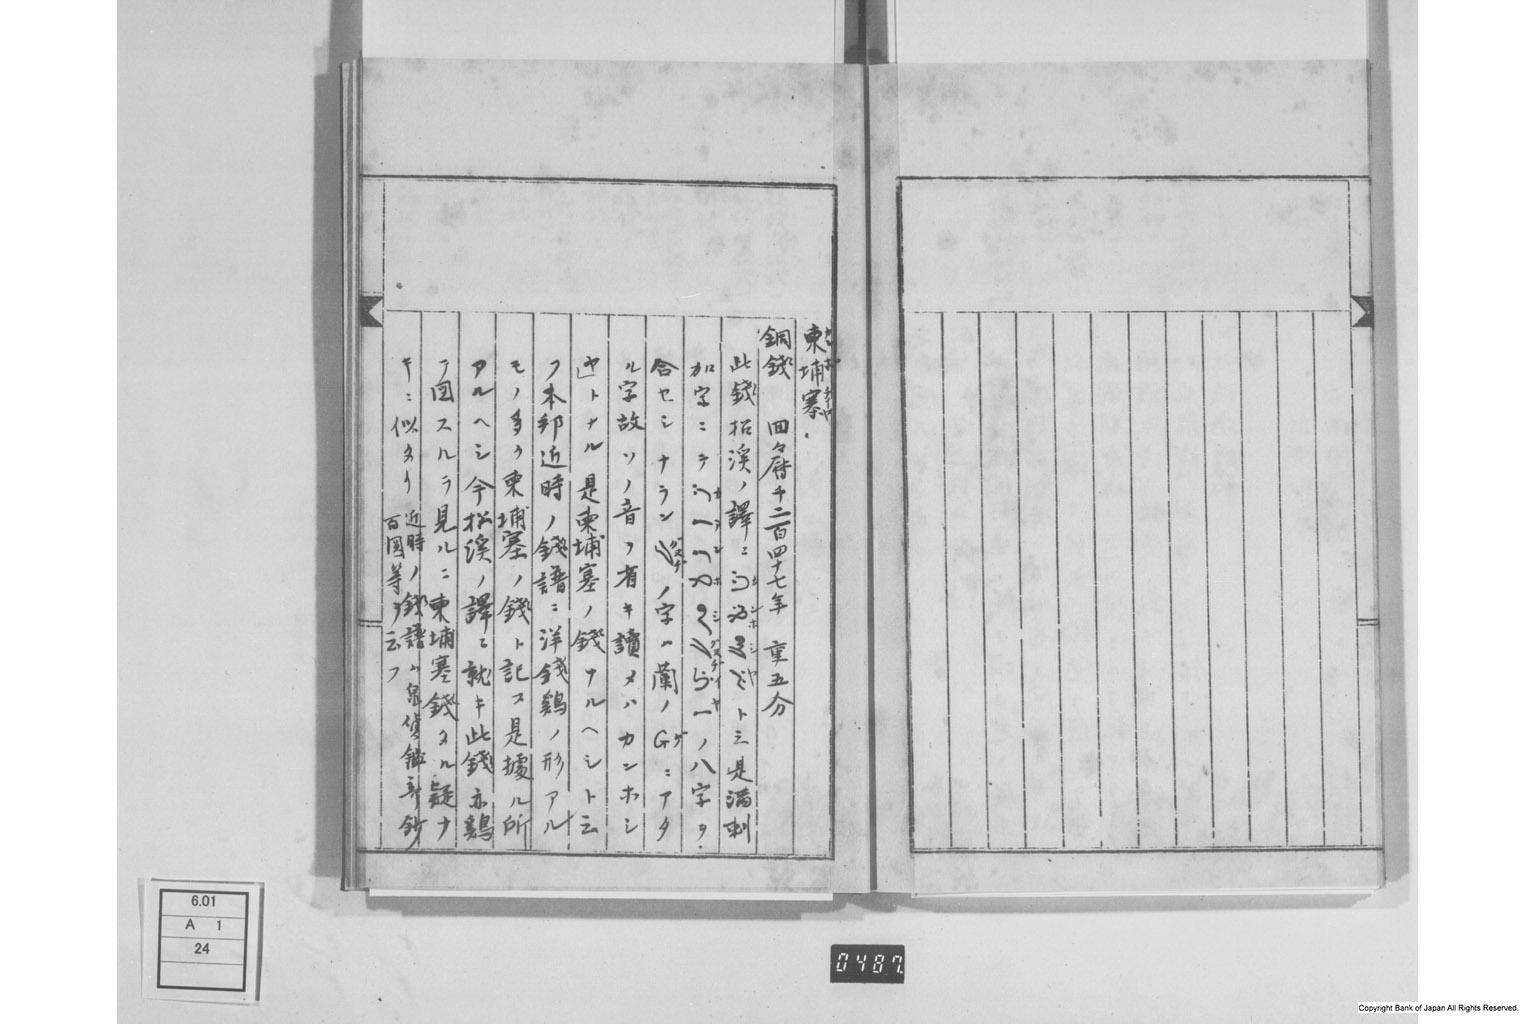 柬埔寨
銅錢 回々暦千二百四十七年 重五分
此錢拓溪ノ譯ニ トミ是満剌
加字ニテ ノ八字ヲ
合セシナラン ノ字ハ蘭ノGニアタ
ル字故ソノ音ヲ省キ讀メハカンホシ
ヤトナル是柬埔寨ノ錢ナルヘシト云
フ本邦近時ノ錢譜ニ洋錢鷄ノ形アル
モノ多ク柬埔寨ノ錢ト記ス是據ル所
アルヘシ今松溪ノ譯ニ就キ此錢亦鷄
ヲ図スルヲ見ルニ柬埔寨錢タル疑ナ
キニ似タリ 近時ノ錢譜ハ泉貨鑑 鈔
百國等ヲ云フ
6.01
A 1
24
0487
Copyright Bank of Japan All Rights Reserved.